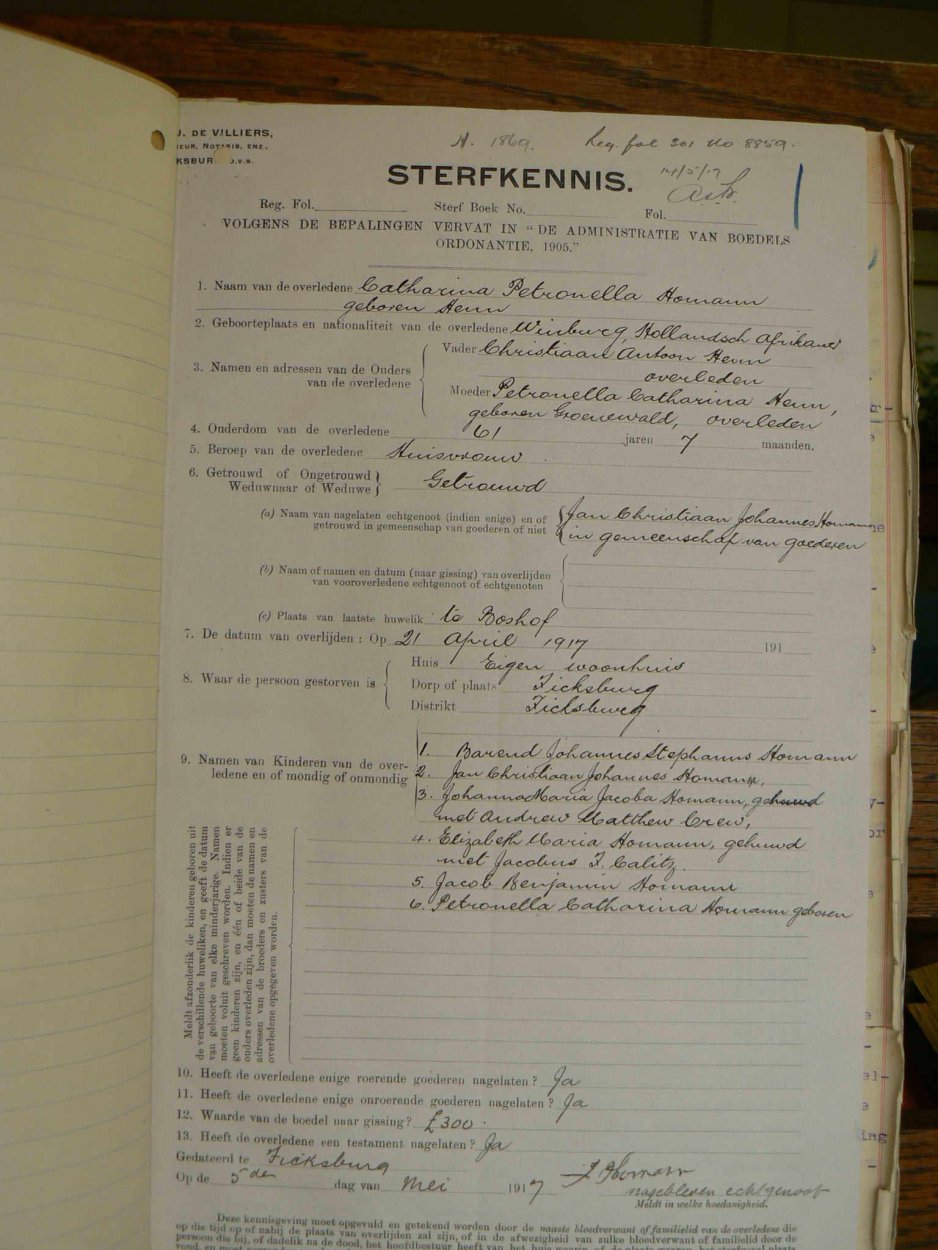 J. DE VILLIERS,
EUR, NOTARIS, ENZ.,
KSBUR O.V.S.
A. 1869. Reg. fol 301 No 8859.
STERFKENNIS.
14/5/17
Reg. Fol. Sterf Boek No. Fol.
VOLGENS DE BEPALINGEN VERVAT IN "DE ADMINISTRATIE VAN BOEDELS
ORDONANTIE, 1905."
1. Naam van de overledene Catharina Petronella Homann
geboren Henn
2. Geboorteplaats en nationaliteit van de overledene Winburg, Hollandsch Afrikaner
3. Namen en adressen van de Ouders van de overledene
Vader Christiaan Antoon Henn
overleden
Moeder Petronella Catharina Henn,
geboren Groenewald, overleden
4. Ouderdom van de overledene 61 jaren 7 maanden.
5. Beroep van de overledene Huisvrouw
6. Getrouwd of Ongetrouwd
Weduwnaar of Weduwe Getrouwd
(a) Naam van nagelaten echtgenoot (indien enige) en of
getrouwd in gemeenschap van goederen of niet
Jan Christiaan Johannes Homann
in gemeenschap van goederen
(b) Naam of namen en datum (naar gissing) van overlijden
van vooroverledene echtgenoot of echtgenoten
(c) Plaats van laatste huwelik te Boshof
7. De datum van overlijden : Op 21 April 1917 191
8. Waar de persoon gestorven is
Huis Eigen woonhuis
Dorp of plaats Ficksburg
Distrikt Ficksburg
9. Namen van Kinderen van de over-
ledene en of mondig of onmondig
1. Barend Johannes Stephanus Homann
2. Jan Christiaan Johannes Homann,
3. Johanna Maria Jacoba Homann, gehuwd
met Andrew Matthew Crew,
4. Elizabeth Maria Homann, gehuwd
met Jacobus F. Calitz.
5. Jacob Benjamin Homann
6. Petronella Catharina Homann geboren
Meldt afzonderlik de kinderen geboren uit
de verschillende huweliken, en geeft de datum
van geboorte van elke minderjarige. Namen
moeten voluit geschreven worden. Indien er
geen kinderen zijn, en één of beide van de
ouders overleden zijn, dan moeten de namen en
adressen van de broeders en zusters van de
overledene opgegeven worden.
10. Heeft de overledene enige roerende goederen nagelaten ? Ja
11. Heeft de overledene enige onroerende goederen nagelaten ? Ja
12. Waarde van de boedel naar gissing? £300
13. Heeft de overledene een testament nagelaten ? Ja
Gedateerd te Ficksburg
Op de 5de dag van Mei 1917
J Homann
nagebleven echtgenoot
Meldt in welke hoedanigheid.
Deze kennisgeving moet opgevuld en getekend worden door de naaste bloedverwant of familielid van de overledene die
op die tijd op of nabij de plaats van overlijden zal zijn, of in de afwezigheid van zulke bloedverwant of familielid door de
persoon die bij, of dadelik na de dood, het hoofdbestuur heeft van het huis